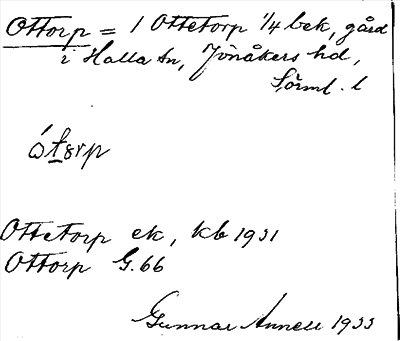 Ottorp = 1 Ottetorp 1/4 bek, gård
i Halla sn, Jönåkers hd,
Sörml. l
ót8rp
Ottetorp ek, kb 1931
Ottorp G. 66
Gunnar Annell 1933